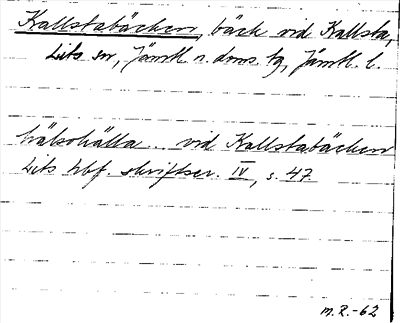 Kallstabäcken, bäck vid Kallsta,
Lits sn, Jämtl. n. doms. tg, Jämtl. l.
hälsokälla... vid Kallstabäcken
Lits hbf. skriftser. IV, s. 47.
M.R.-62